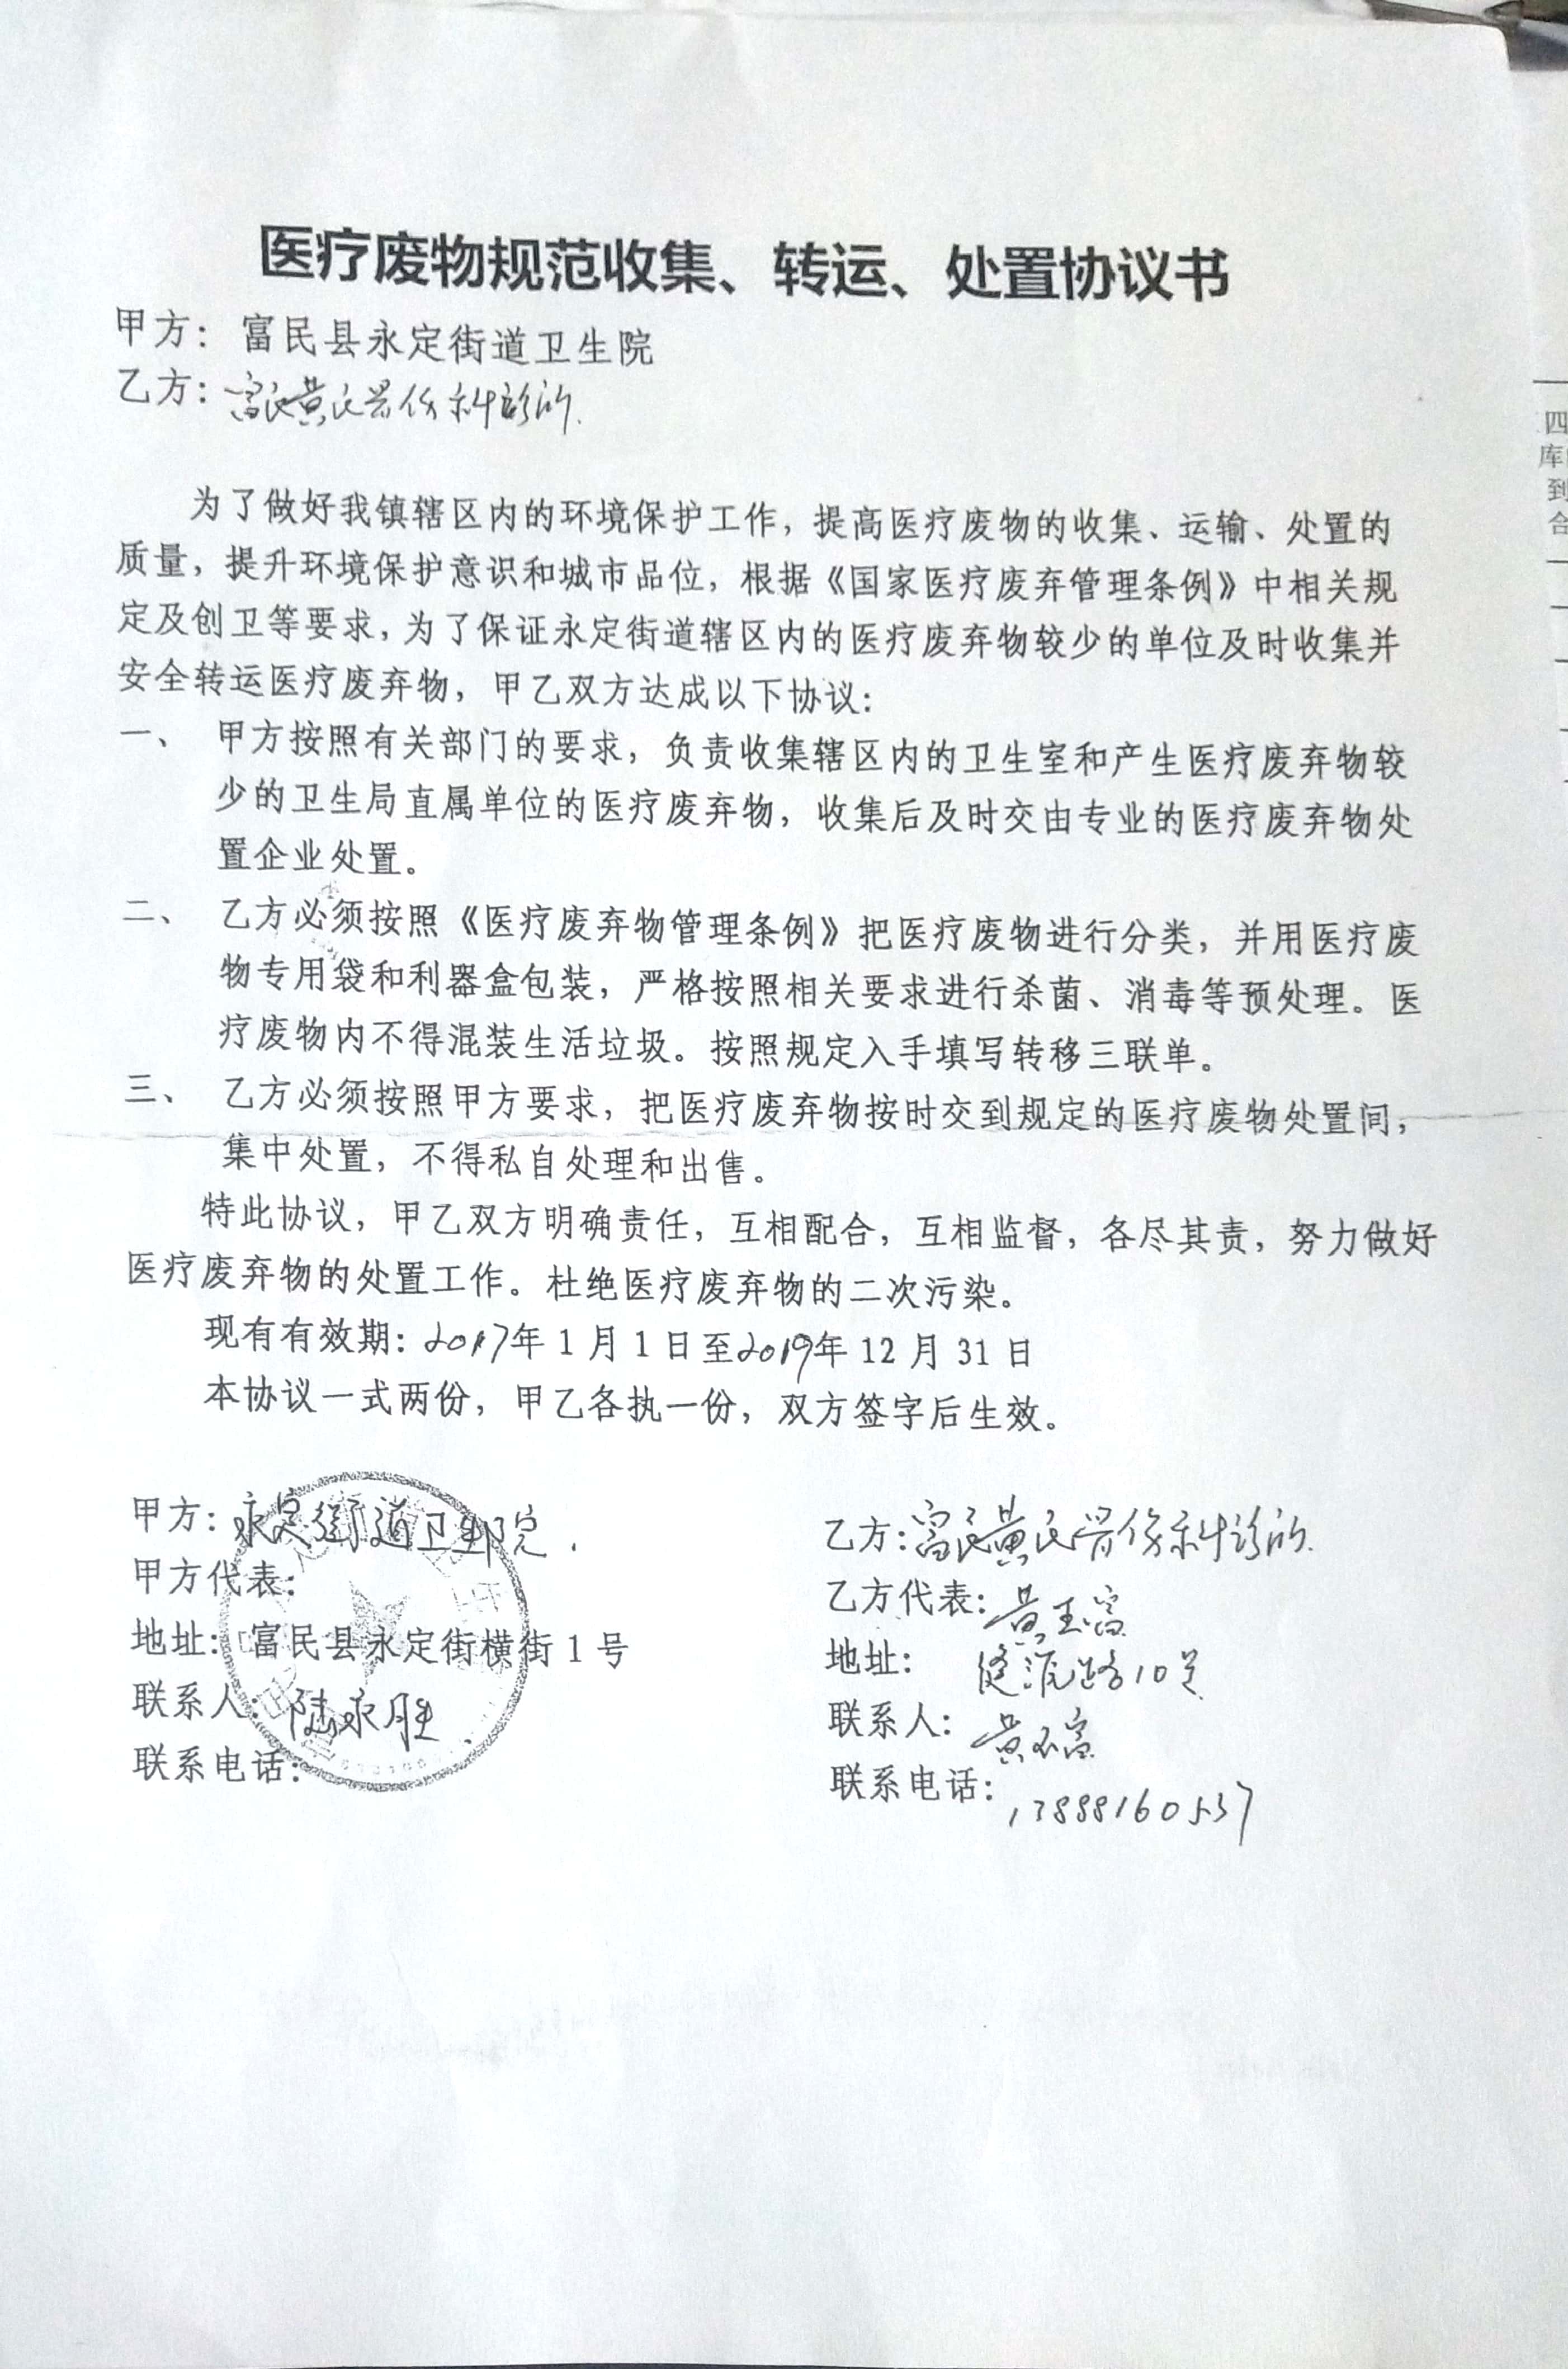 医疗废物规范收集、转运、处置协议书
甲方：富民县永定街道卫生院
乙方：富民黄氏骨伤科诊所
为了做好我镇辖区内的环境保护工作，提高医疗废物的收集、运输、处置的
质量，提升环境保护意识和城市品位，根据《国家医疗废弃管理条例》中相关规
定及创卫等要求，为了保证永定街道辖区内的医疗废弃物较少的单位及时收集并
安全转运医疗废弃物，甲乙双方达成以下协议：
一、 甲方按照有关部门的要求，负责收集辖区内的卫生室和产生医疗废弃物较
少的卫生局直属单位的医疗废弃物，收集后及时交由专业的医疗废弃物处
置企业处置。
二、 乙方必须按照《医疗废弃物管理条例》把医疗废物进行分类，并用医疗废
物专用袋和利器盒包装，严格按照相关要求进行杀菌、消毒等预处理。医
疗废物内不得混装生活垃圾。按照规定入手填写转移三联单。
三、 乙方必须按照甲方要求，把医疗废弃物按时交到规定的医疗废物处置间，
集中处置，不得私自处理和出售。
特此协议，甲乙双方明确责任，互相配合，互相监督，各尽其责，努力做好
医疗废弃物的处置工作。杜绝医疗废弃物的二次污染。
现有有效期：2017年1月1日至2019年12月31日
本协议一式两份，甲乙各执一份，双方签字后生效。
甲方：永定街道卫生院
甲方代表：
地址：富民县永定街横街1号
联系人：陆永胜
联系电话：
乙方：富民黄氏骨伤科诊所
乙方代表：黄玉富
地址： 路10号
联系人：黄玉富
联系电话：13888160537
四
库
到
合